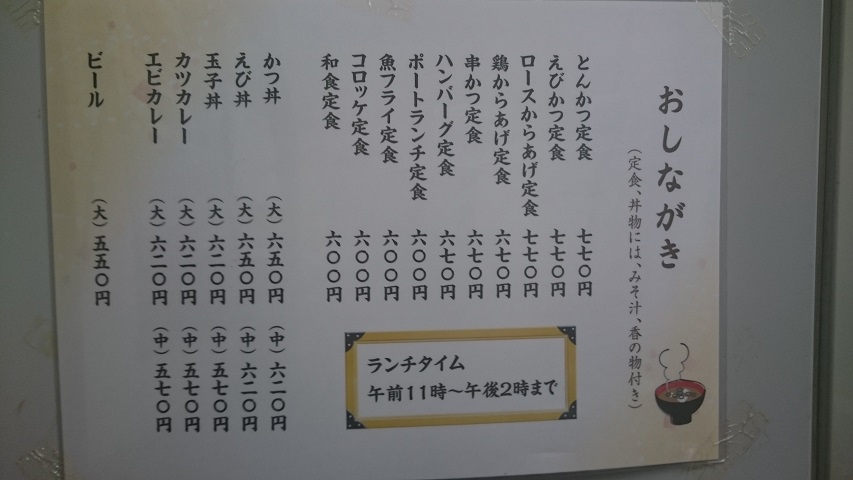 おしながき
（定食、丼物には、みそ汁、香の物付き）
とんかつ定食 七七〇円
えびかつ定食 七七〇円
ロースからあげ定食 七七〇円
鶏からあげ定食 六七〇円
串かつ定食 六七〇円
ハンバーグ定食 六七〇円
ポートランチ定食 六〇〇円
魚フライ定食 六〇〇円
コロッケ定食 六〇〇円
和食定食 六〇〇円
かつ丼 （大）六五〇円 （中）六二〇円
えび丼 （大）六五〇円 （中）六二〇円
玉子丼 （大）六二〇円 （中）五七〇円
カツカレー （大）六二〇円 （中）五七〇円
エビカレー （大）六二〇円 （中）五七〇円
ビール （大）五五〇円
ランチタイム
午前11時～午後2時まで